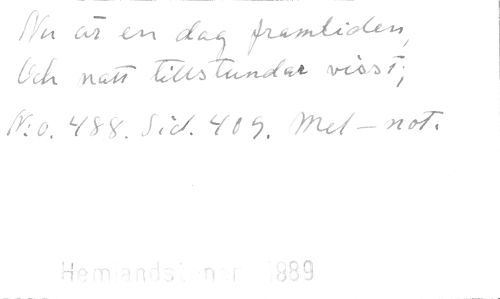 Nu är en dag framliden,
Och natt tillstundar visst;
N:o. 488. Sid. 409. Mel-not.
Hemlandstoner 1889